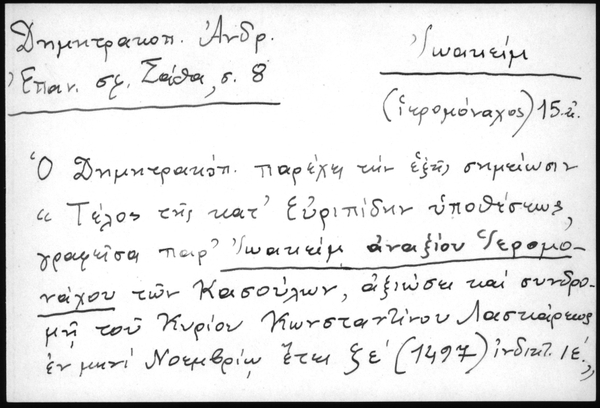 Δημητρακοπ. Ἀνδρ.
Ἐπαν. σφ. Σάθα, σ. 8
Ἰωακεὶμ
(ἱερομόναχος) 15. αἰ.
Ὁ Δημητρακόπ. παρέχει τὴν ἑξῆς σημείωσιν
« Τέλος τῆς κατ' Εὐριπίδην ὑποθέσεως,
γραφεῖσα παρ' Ἰωακεὶμ ἀναξίου Ἱερομο-
νάχου τῶν Κασούλων, ἀξιώσει καὶ συνδρο-
μῇ τοῦ Κυρίου Κωνσταντίνου Λασκάρεως
ἐν μηνὶ Νοεμβρίῳ ἔτει ζε' (1497) ἰνδικτ. ιε'.»